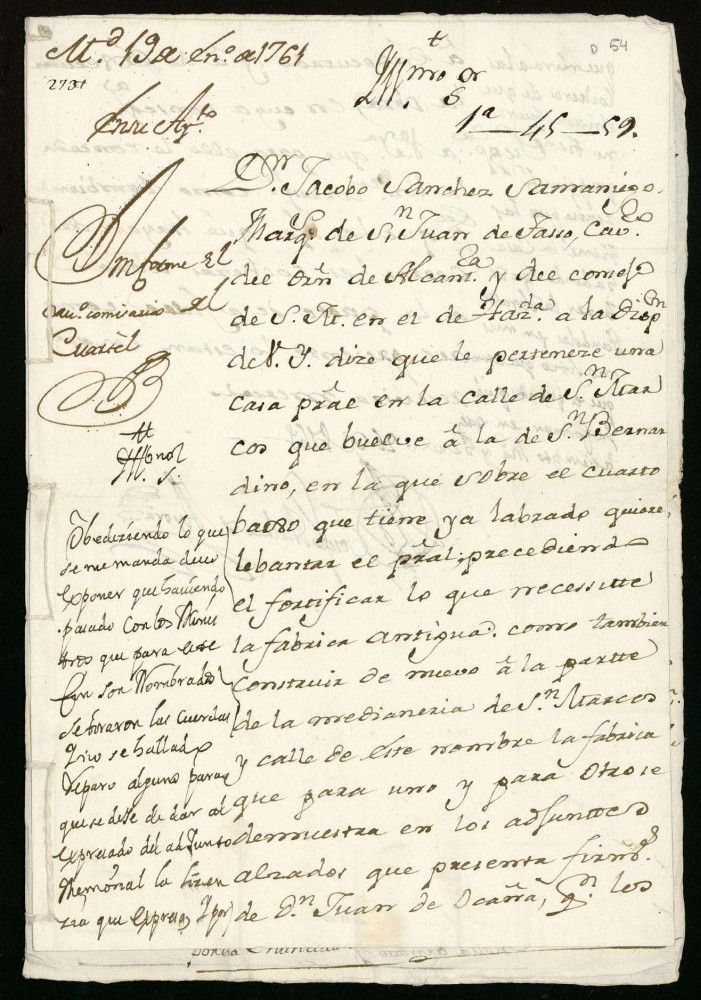 M.d 19 de En.o de 1761
D 54
2731
Yll.mo S.or
En su Ay.to
1a — 45 — 59.
Ynforme el
cau.o comisario del
Cuartel
D.n Jacobo Sanchez Samaniego
Marq.s de S.n Juan de Tasso, Cav.o
del Orn de Alcant.ra y del consejo
de S. M. en el de Haz.da a la Disp.n
de V. Y. dize que le perteneze una
casa pral en la calle de S.n Mar
cos que buelve â la de S.n Bernar
dino, en la que sobre el cuarto
baxo que tiene ya labrado quiere
lebantar el pral; precediendo
el fortificar lo que necessitte
la fabrica antigua. como tambien
construir de nuevo â la partte
de la medianeria de S.n Marcos
y calle de este nombre la fabrica
que para uno y para otro se
demuestra en los adjuntos
alzados que presenta firm.s
de D.n Juan de Ocaña, q.n los
Obedeziendo lo que
se me manda devo
exponer que haviendo
pasado con los Minis
tros que para este
fin son nombrados
se tiraron las cuerdas
y no se hallado
reparo alguno para
que se deje de dar al
expresado del adjunto
memorial la lizen
zia que expresa, y por